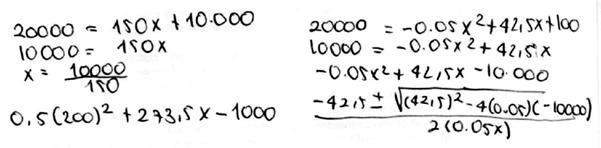 20000 = 150x + 10.000
10000 = 150x
x = 10000/150
0.5(200)² + 273,5x - 1000
20000 = -0.05x² + 42,5x + 100
10000 = -0.05x² + 42,5x
-0.05x² + 42,5x - 10.000
-42,5 ± √(42,5)² - 4(0.05)(-10000)
2(0.05x)